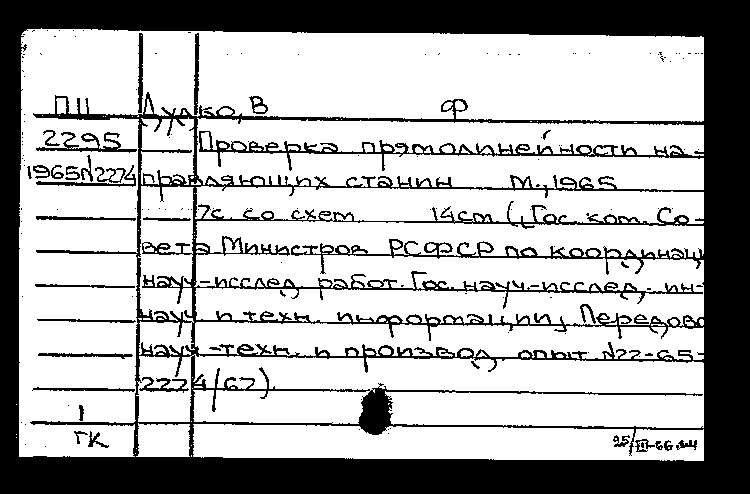 ПЦ Дудко, В Ф
2295 Проверка прямолинейности на-
1965п2274 правляющих станин М., 1965
7с. со схем. 14см (Гос. ком. Со-
вета Министров РСФСР по координац
науч-исслед. работ. Гос. науч-исслед. ин-
науч и техн. информации. Передово
науч-техн. и производ. опыт №22-65-
2274/67).
1
ГК 25/III-66